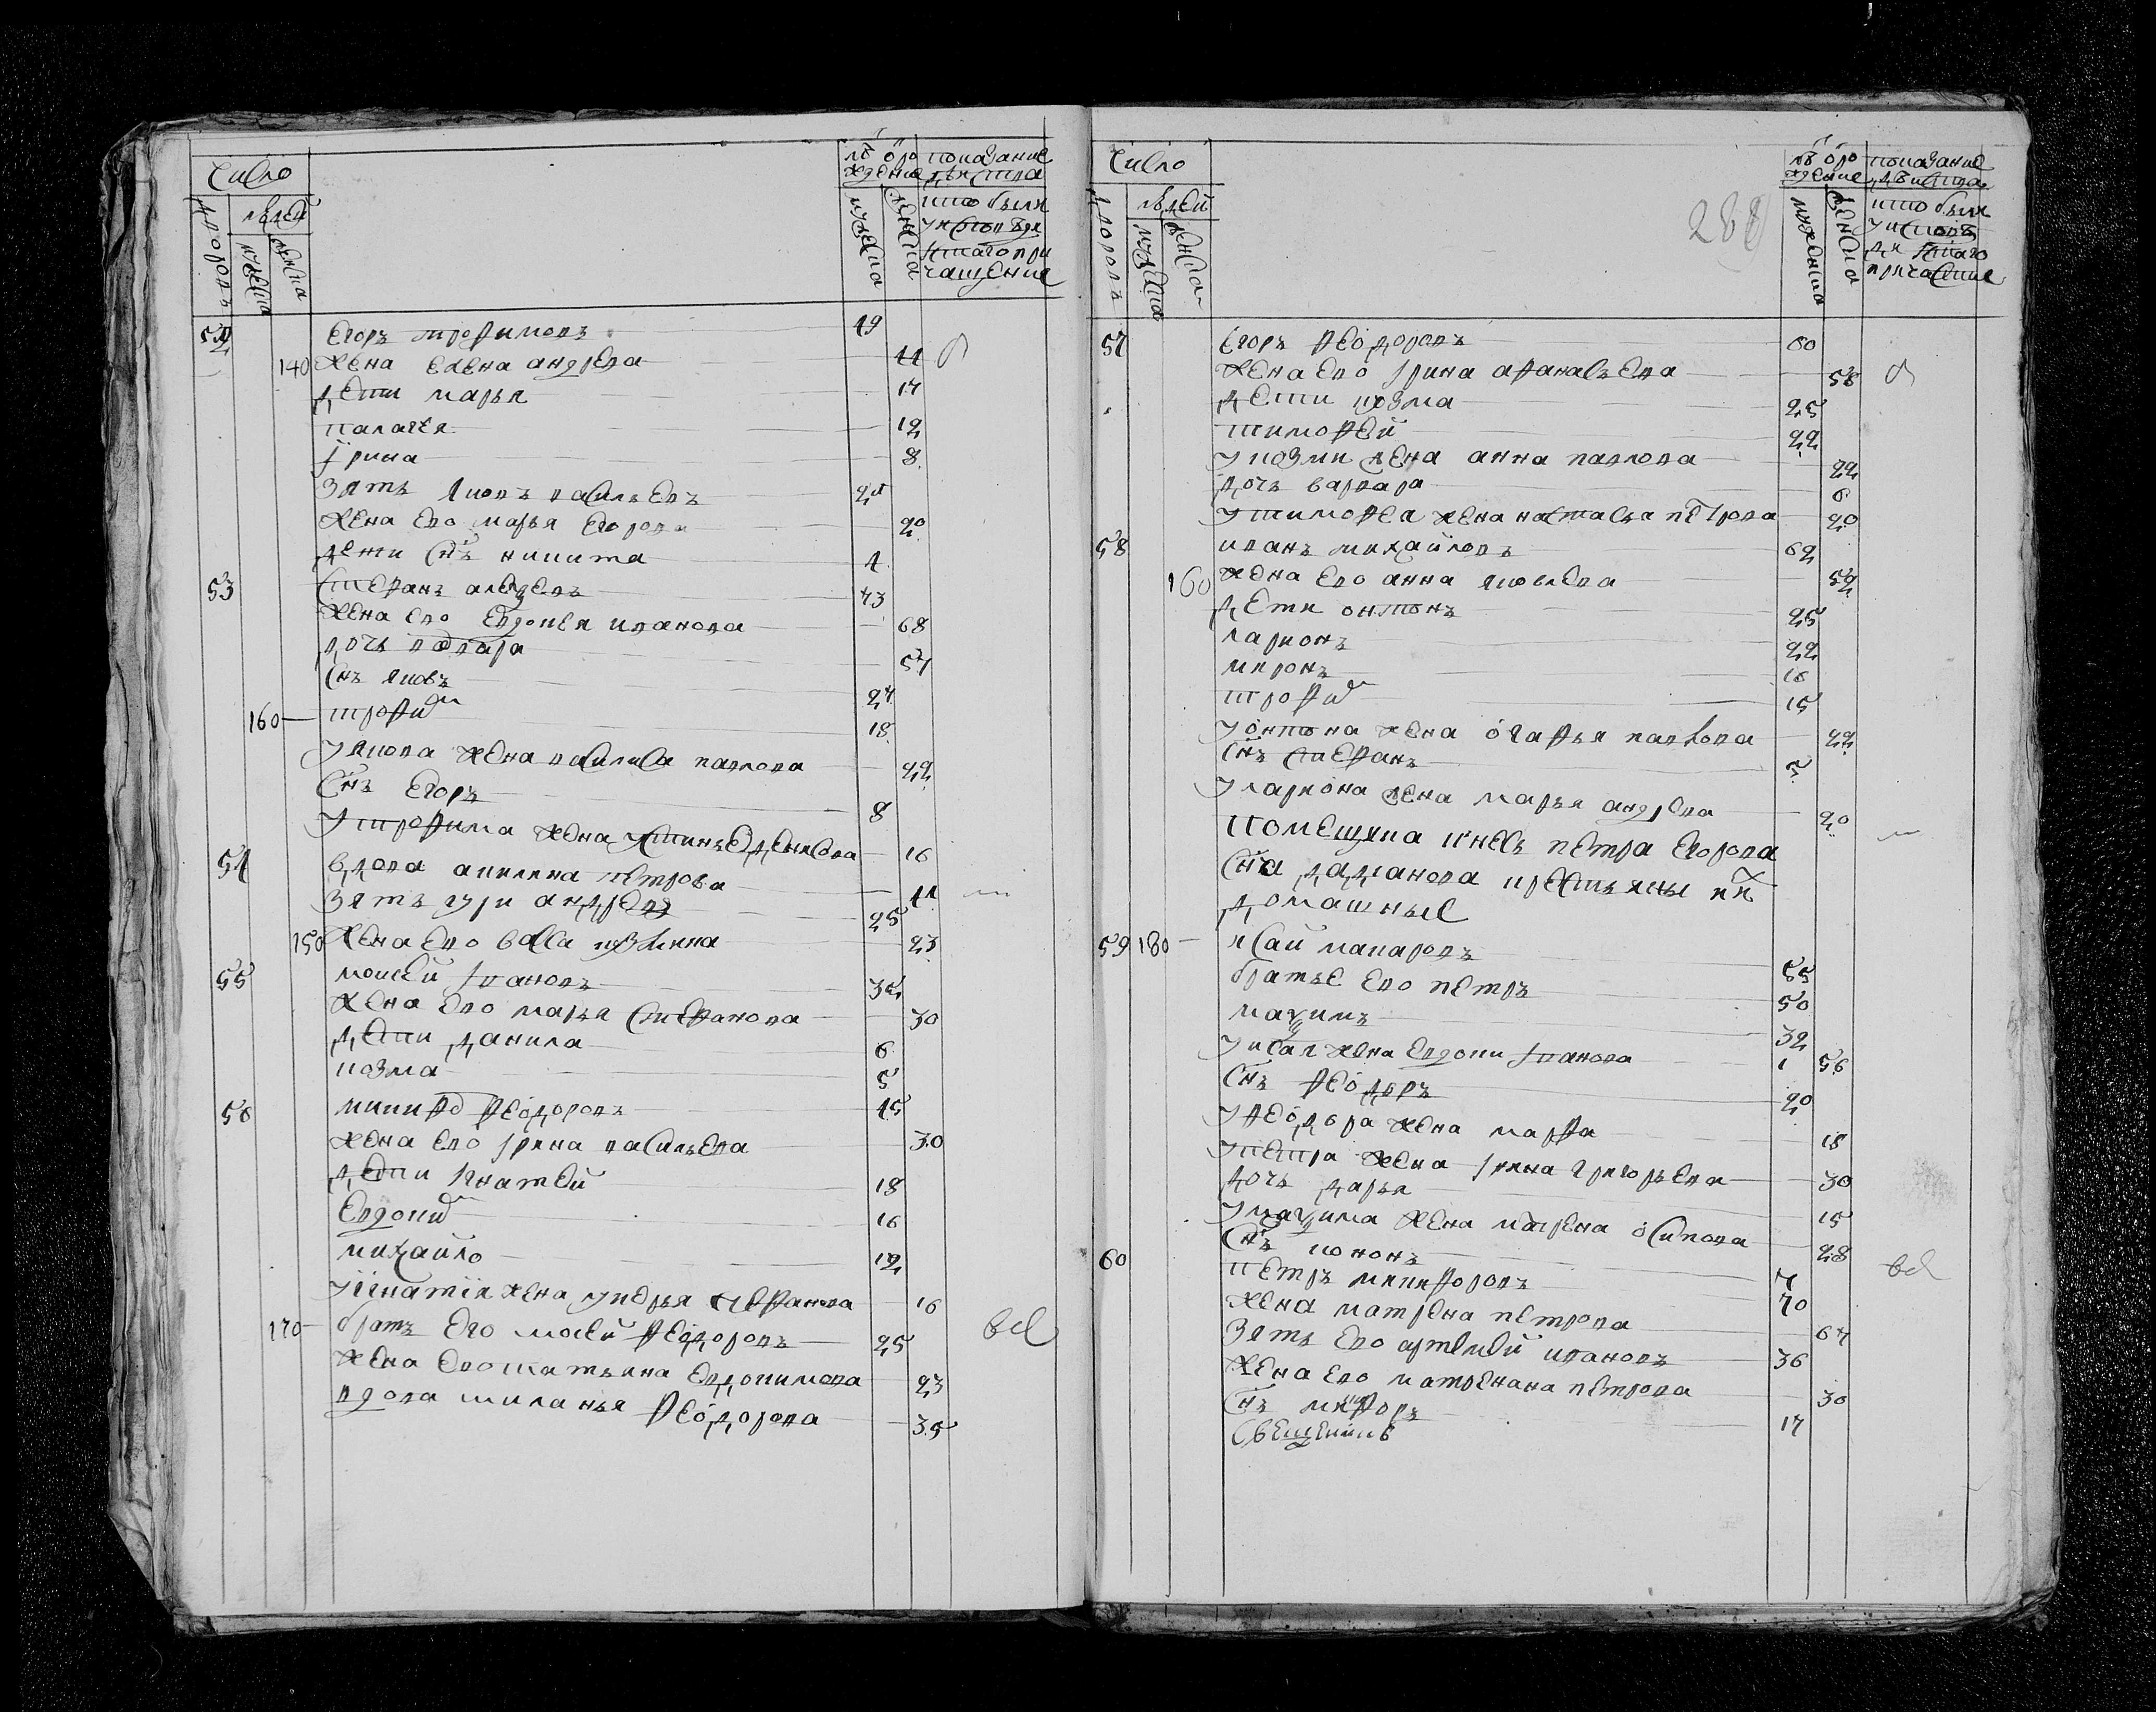 Число
дворовъ
людей
мужеска
женска
лѣ о ро
ждение
мужеска
женска
показание
действа
кто были
у исповѣди
и святаго при
чащение
52 Егоръ трофимовъ 49
140 жена елена андрева 44
дети марья 17
палагея 12
ирина 8
зять яковъ василъевъ 20
жена ево марья егорова 20
дети снъ никита 1
53 степанъ 73
жена ево евдокея иванова 68
дочь 57
снъ яковъ 27
160 трофим 18
у якова жена василиса павлова 22
снъ егоръ 8
у трофима жена 16
54 вдова акилина петрова 41
зять гури андревъ 25
150 жена ево васса козмина 23
55 мокей ивановъ 32
жена ево марья степанова 30
дети данила 6
козма 5
56 никифо феодоровъ 45
жена ево ирина васильева 30
дети игнатей 18
Евдоки 16
михайло 12
у игнатия жена степанова 16
170 братъ его мосей феодоровъ 25
жена ево татьяна евдокимова 23
вдова миланья феодорова 35
Число
дворовъ
людей
мужеска
женска
лѣ о ро
ждение
мужеска
женска
показание
действа
кто были
у исповѣ
ди святаго
причастие
288
57 Егоръ феодоровъ 60
жена ево ирина афанасъева 58
дети козма 25
тимофей 22
у козми жена анна павлова 22
дочь варвара 6
у тимофея жена настасья петрова 20
58 иванъ михайловъ 62
160 жена ево анна яковлева 52
дети онтонъ 25
ларионъ 22
миронъ 16
трофи 15
у онтона жена огафья павлова 22
снъ степанъ 5
у лариона жена марья андрева 20
Помещика князь петра Егорова
сна дадианова крестьяны
домашные
59 180 исай макаровъ 55
братье ево петръ 50
маѯимъ 32
у исая жена евдоки иванова 56
снъ феодоръ 20
у феодора жена марфа 18
у петра жена ирина григоръева 30
дочь дарья 15
у маѯима жена матрена осипова 28
снъ кононъ 7
60 петръ никифоровъ 70
жена матрена петрова 67
зять ево артемей ивановъ 36
жена ево матренана петрова 30
снъ никифоръ 17